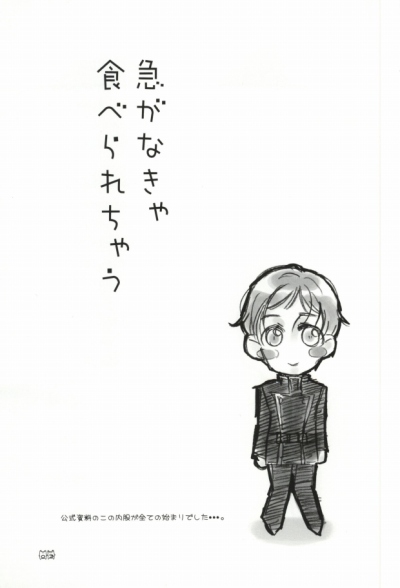 急がなきゃ
食べられちゃう
公式資料のこの内股が全ての始まりでした･･･。